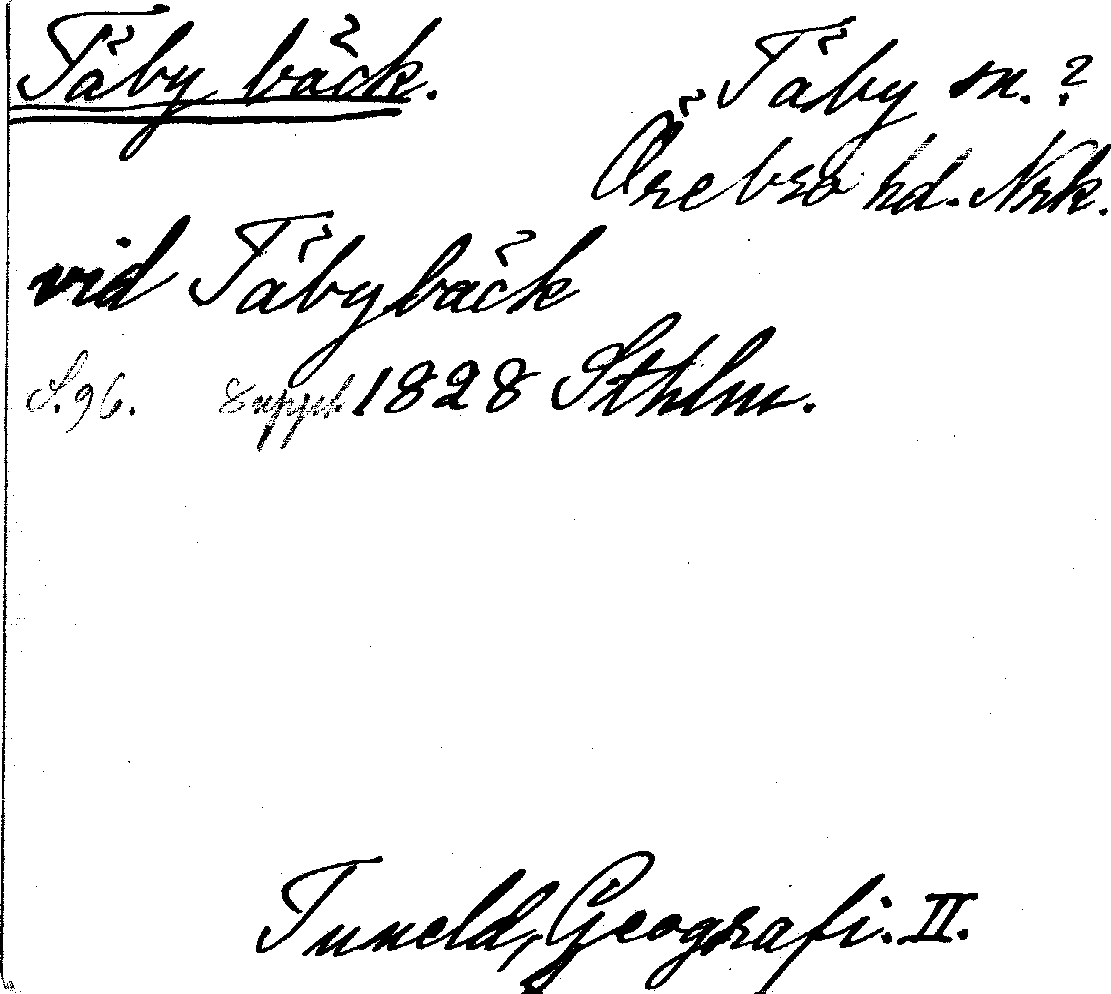 Täby bäck.
Täby sn.?
Örebro hd. Nrk.
vid Täbybäck
S.96. Suppl. 1828 Sthlm.
Tuneld, Geografi. II.